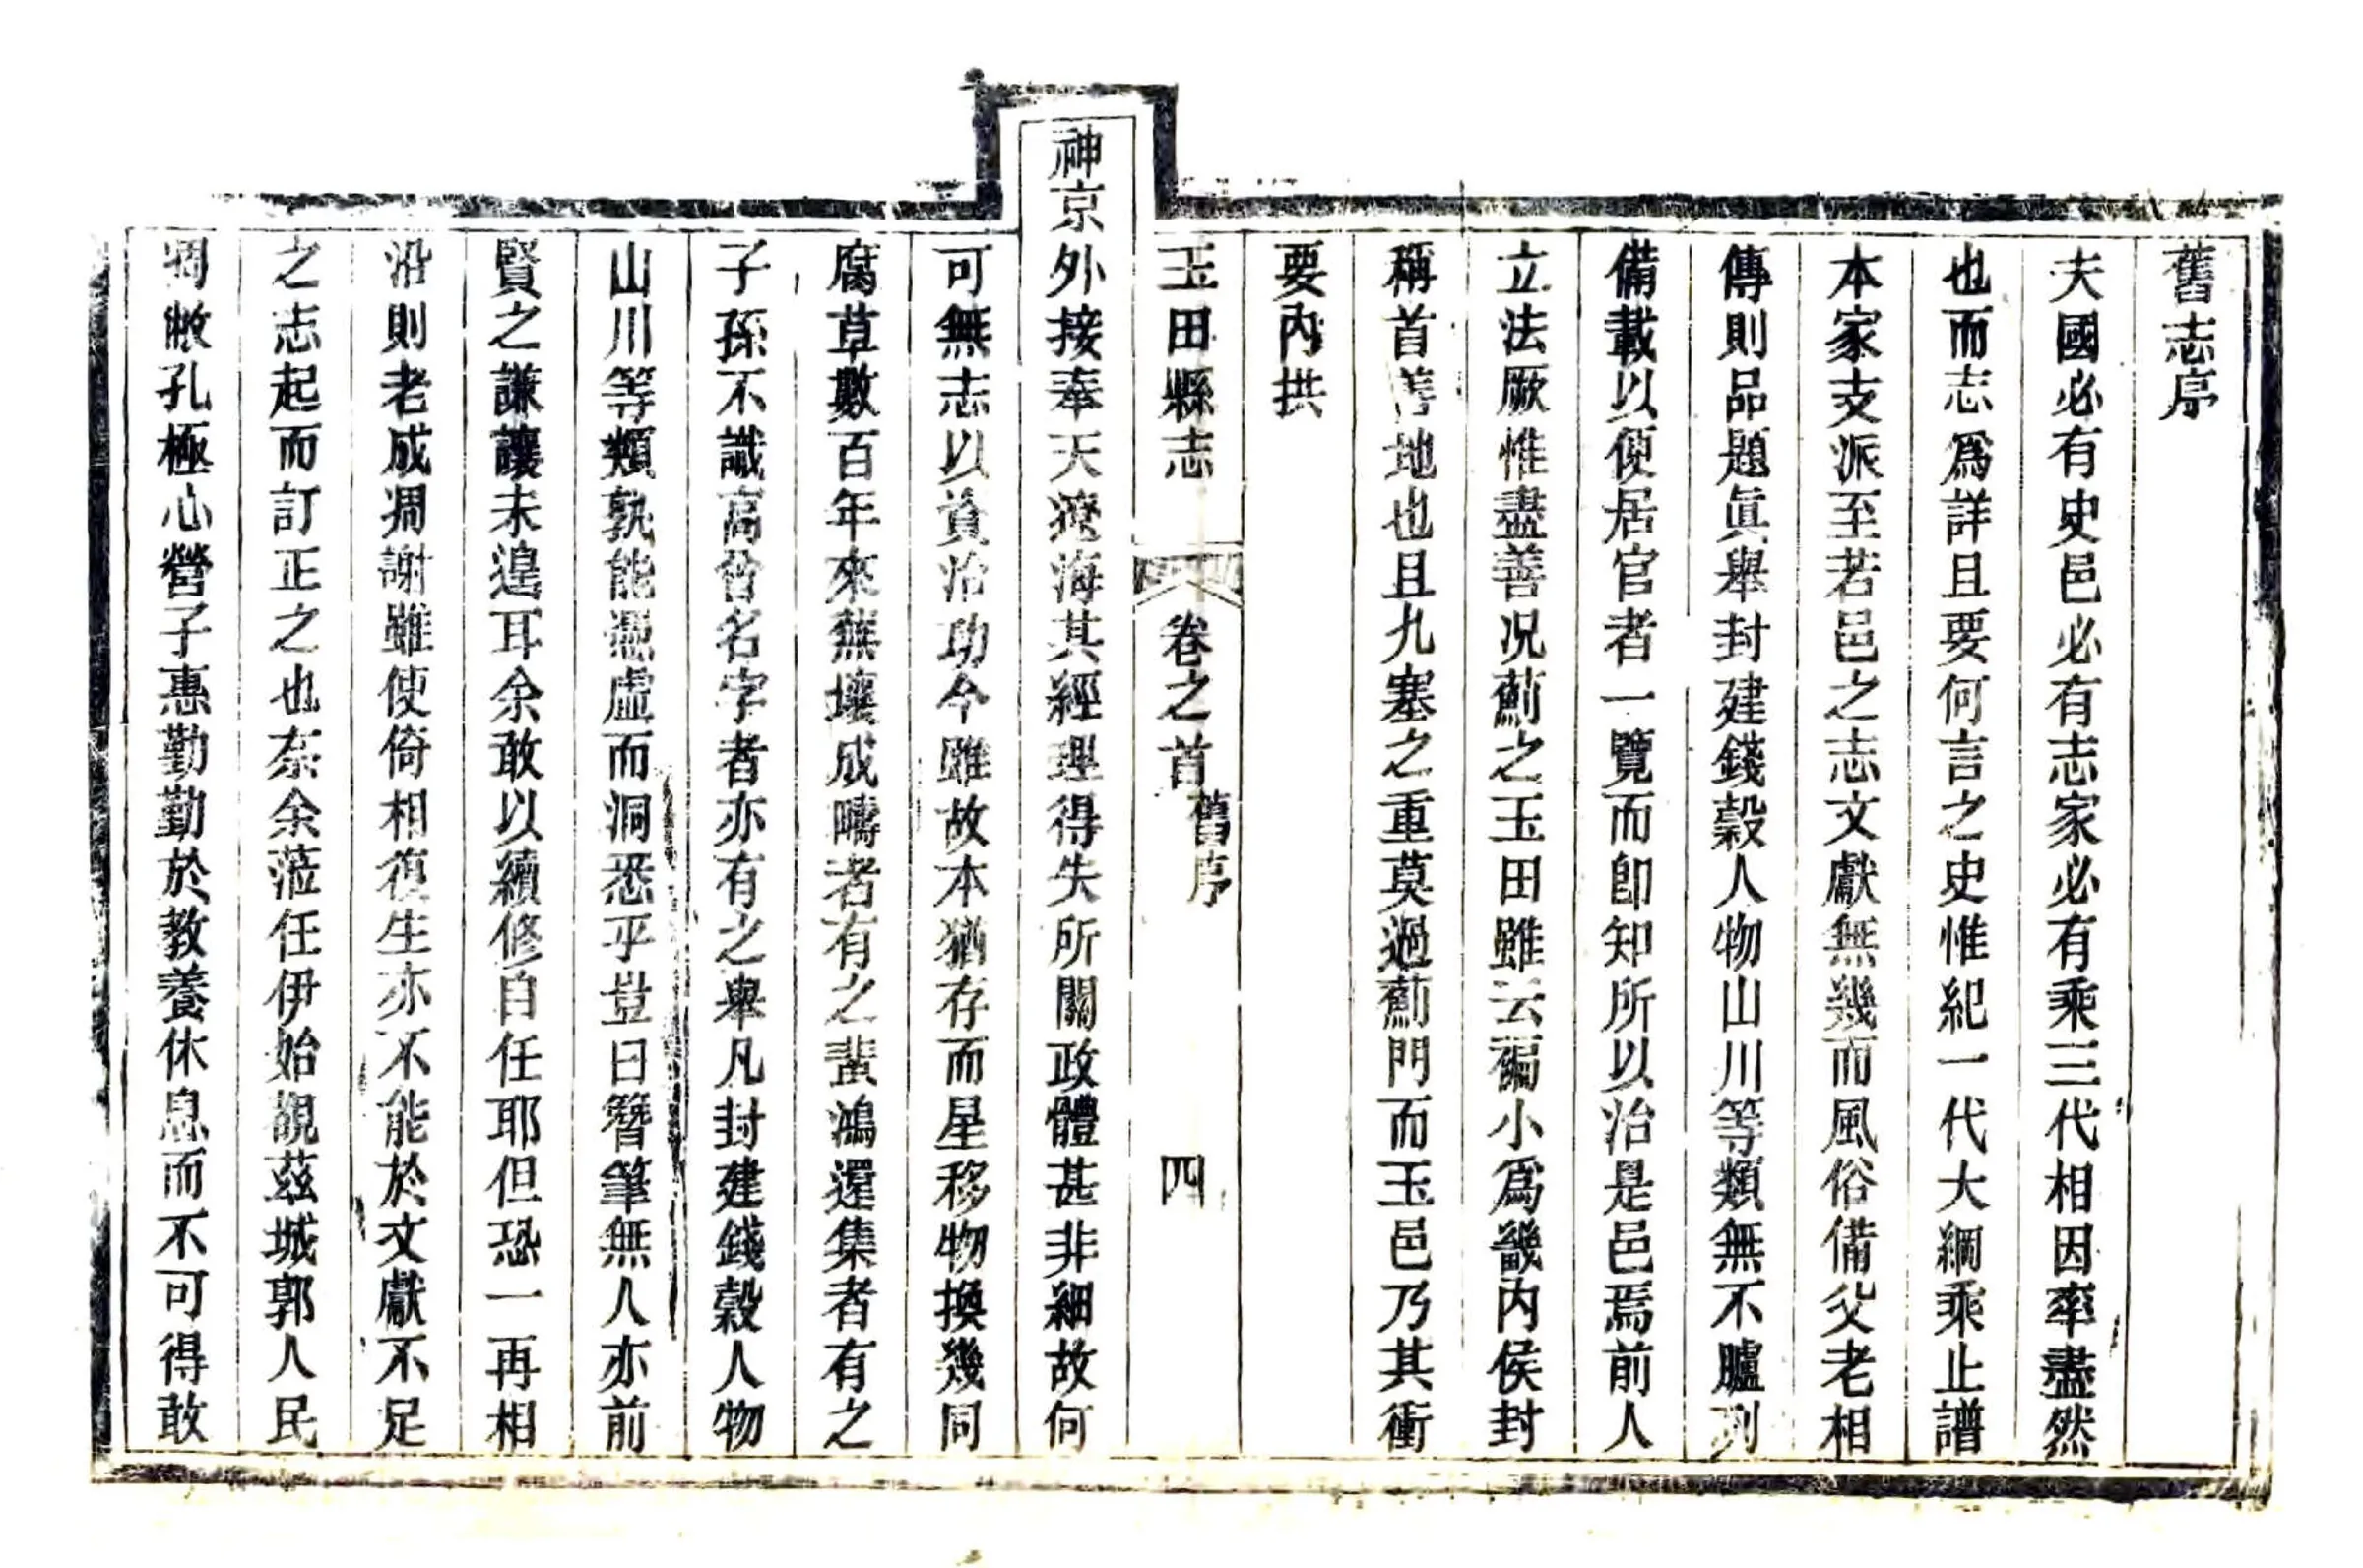 舊志序
夫國必有史邑必有志家必有乘三代相因率盡然
也而志爲詳且要何言之史惟紀一代大綱乘止譜
本家支派至若邑之志文獻無幾而風俗備父老相
傳則品題眞舉封建錢穀人物山川等類無不臚列
備載以便居官者一覽而卽知所以治是邑焉前人
立法厥惟盡善况薊之玉田雖云褊小爲畿內侯封
稱首善地也且九塞之重莫過薊門而玉邑乃其衝
要內拱
玉田縣志 卷之首 舊序 四
神京外接奉天遼海其經理得失所關政體甚非細故何
可無志以資治功今雖故本猶存而星移物換幾同
腐草數百年來蕪壤成疇者有之蜚鴻還集者有之
子孫不識高曾名字者亦有之舉凡封建錢穀人物
山川等類孰能憑虛而洞悉乎豈曰簪筆無人亦前
賢之謙讓未遑耳余敢以續修自任耶但恐一再相
沿則老成凋謝雖使倚相復生亦不能於文獻不足
之志起而訂正之也奈余蒞任伊始覩茲城郭人民
凋敝孔極心營子惠勤勤於教養休息而不可得敢